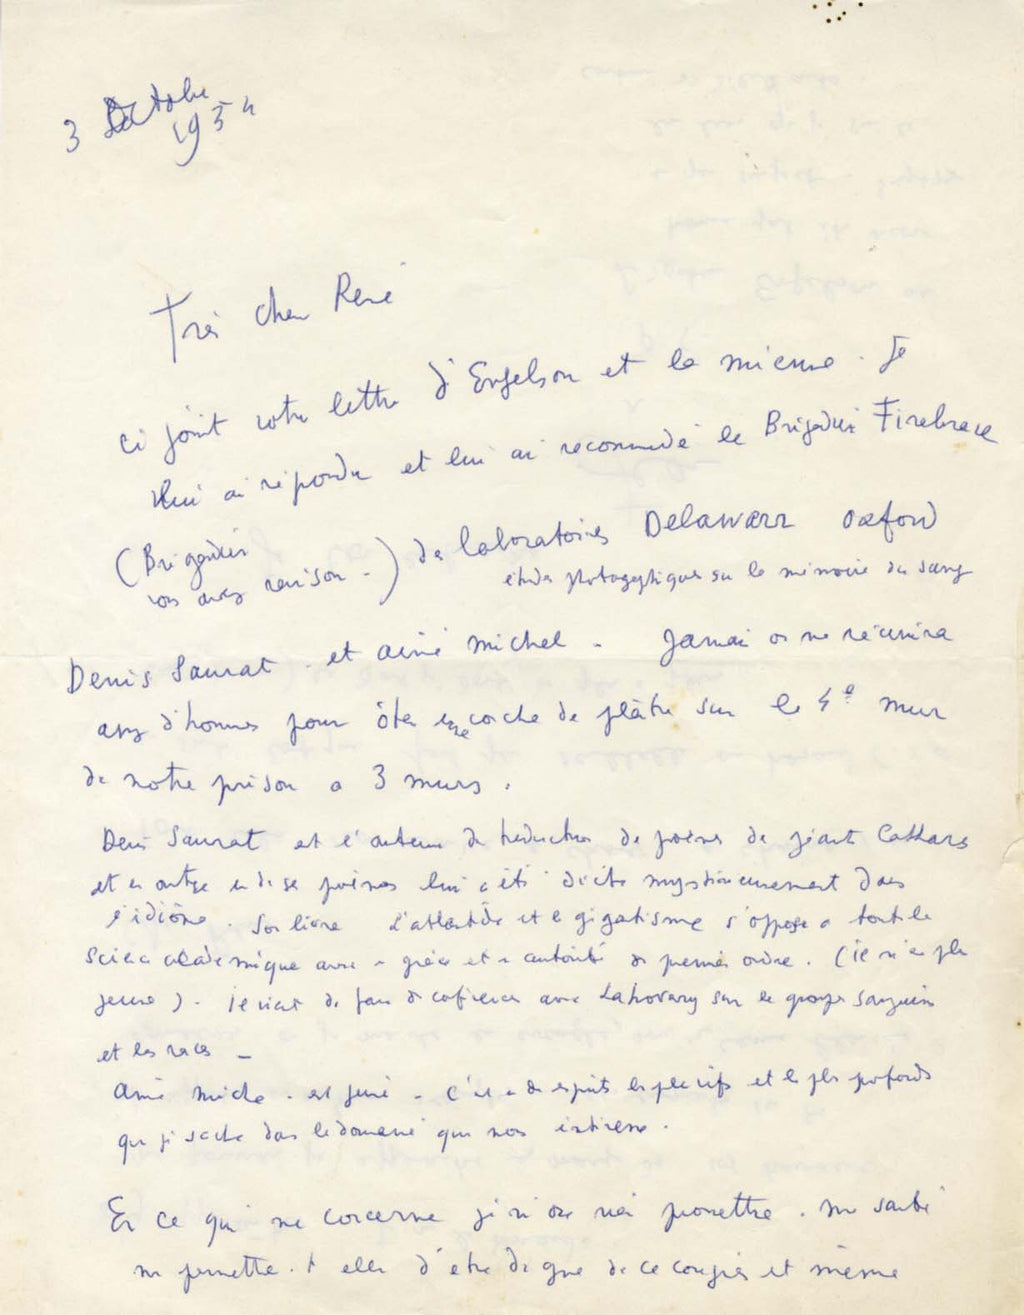 3 Octobre
1954
Très cher René
ci joint votre lettre d'Engelson et la mienne. Je
lui ai répondu et lui ai recommandé le Brigadier Firebrace
(Brigadier
vous avez raison.) des laboratoires Delawarr Oxford
études photographiques sur la mémoire du sang
Denis Saurat. et aimé michel. Jamais on ne réunira
assez d'hommes pour ôter une couche de plâtre sur le 4e mur
de notre prison a 3 murs.
Denis Saurat est l'auteur de traduction de poèmes de géants Cathares
et en outre un de ses poèmes lui a été dicté mystérieusement dans
l'idiôme. Son livre l'atlantide et le gigantisme s'oppose a toute la
science académique avec une grâce et une autorité de premier ordre. (il n'est plus
jeune). Il vient de faire des conférences avec Lahovary sur les groupes sanguins
et les races –
Aimé michel. est jeune. C'est un des esprits les plus vifs et les plus profonds
que je sache dans le domaine qui nous intéresse.
En ce qui me concerne je n'ose rien promettre. ma santé
me permettra-t-elle d'être digne de ce congrès et même